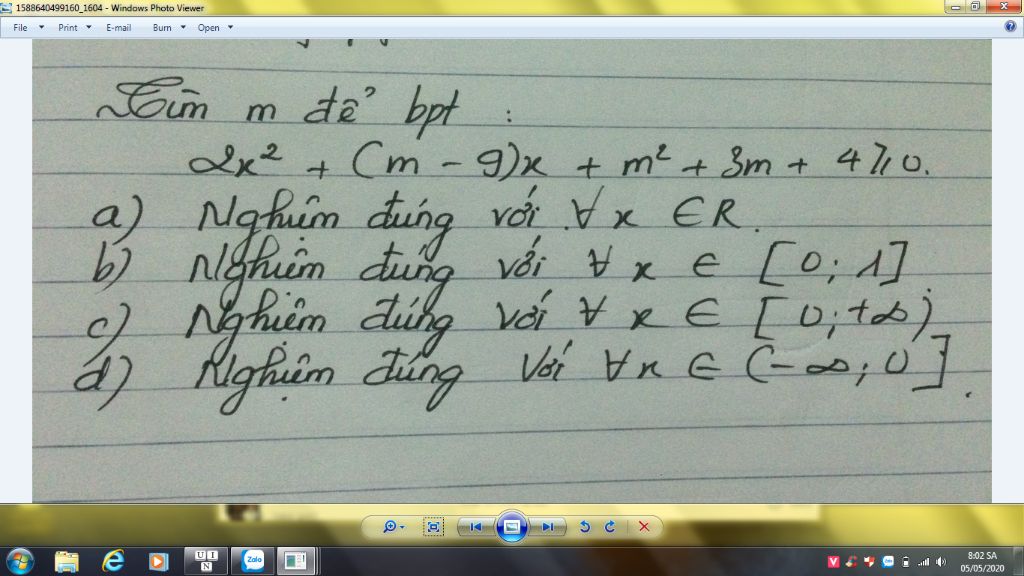 1588640499160_1604 - Windows Photo Viewer
File Print E-mail Burn Open
Tìm m để bpt :
2x² + (m - 9)x + m² + 3m + 4 ⩾ 0.
a) Nghiệm đúng với ∀ x ∈ R.
b) Nghiệm đúng với ∀ x ∈ [0; 1]
c) Nghiệm đúng với ∀ x ∈ [0; +∞)
d) Nghiệm đúng với ∀ x ∈ (-∞; 0].
U I N
Zalo
8:02 SA
05/05/2020